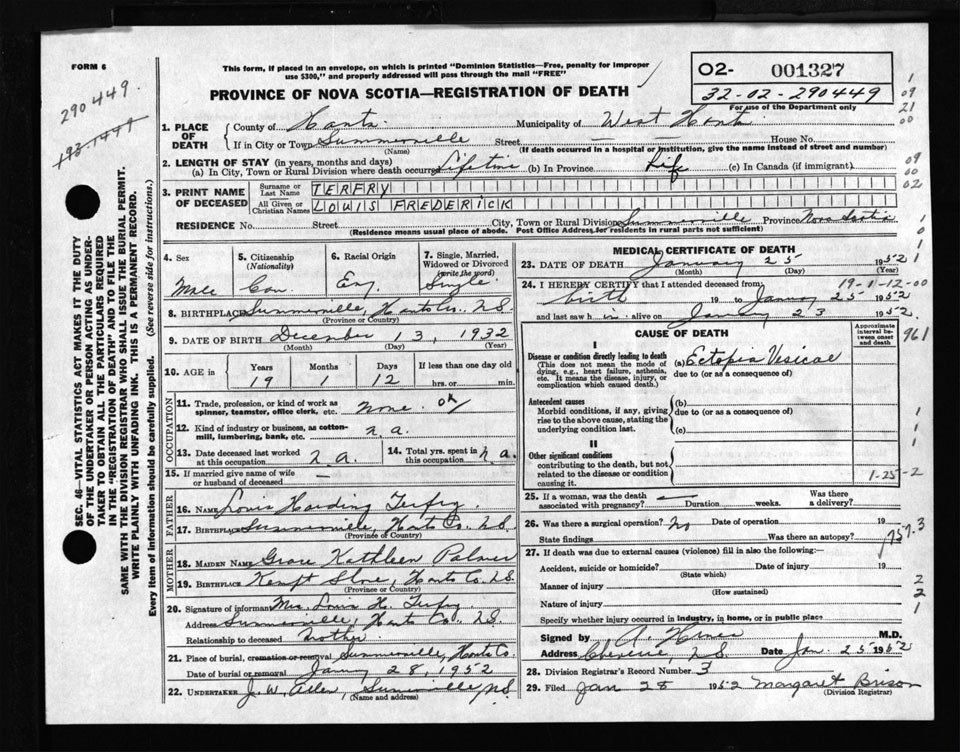 FORM 6
This form, if placed in an envelope, on which is printed "Dominion Statistics—Free, penalty for improper
use $300," and properly addressed will pass through the mail "FREE"
02- 001327
32-02-290449
For use of the Department only
290449
193-1499
PROVINCE OF NOVA SCOTIA—REGISTRATION OF DEATH
1. PLACE OF DEATH
County of Hants Municipality of West Hants
If in City or Town Summerville Street — House No.
(Name) (If death occurred in a hospital or institution, give the name instead of street and number)
2. LENGTH OF STAY (in years, months and days)
(a) In City, Town or Rural Division where death occurred Lifetime (b) In Province Life (c) In Canada (if immigrant)
3. PRINT NAME OF DECEASED
Surname or Last Name TERFRY
All Given or Christian Names LOUIS FREDERICK
RESIDENCE No. Street City, Town or Rural Division Summerville Province Nova Scotia
(Residence means usual place of abode. Post Office Address for residents in rural parts not sufficient)
4. Sex
Male
5. Citizenship
(Nationality)
Can.
6. Racial Origin
Eng
7. Single, Married, Widowed or Divorced
(write the word)
Single
8. BIRTHPLACE Summerville, Hants Co. N.S.
(Province or Country)
9. DATE OF BIRTH December 13, 1932
(Month) (Day) (Year)
10. AGE in
Years Months Days If less than one day old
19 1 12 hrs. or min.
OCCUPATION
11. Trade, profession, or kind of work as spinner, teamster, office clerk, etc. none ok
12. Kind of industry or business, as cotton-mill, lumbering, bank, etc. n a.
13. Date deceased last worked at this occupation n a.
14. Total yrs. spent in this occupation n a.
15. If married give name of wife or husband of deceased —
FATHER
16. NAME Louis Harding Terfry
17. BIRTHPLACE Summerville, Hants Co. N.S.
(Province or Country)
MOTHER
18. MAIDEN NAME Grace Kathleen Palmer
19. BIRTHPLACE Kempt Shore, Hants Co. N.S.
(Province or Country)
20. Signature of informant Mrs. Louis H. Terfry
Address Summerville, Hants Co., N.S.
Relationship to deceased Mother
21. Place of burial, cremation or removal Summerville, Hants Co.
Date of burial or removal Jan'y 28, 1952
22. UNDERTAKER J. W. Allen, Summerville N.S.
(Name and address)
MEDICAL CERTIFICATE OF DEATH
23. DATE OF DEATH January 25 1952
(Month) (Day) (Year)
24. I HEREBY CERTIFY that I attended deceased from 19-1-12-00
birth 19 to January 25 1952
and last saw him alive on January 23 1952.
CAUSE OF DEATH
Approximate interval between onset and death
961
I
Disease or condition directly leading to death
(This does not mean the mode of dying, e.g., heart failure, asthenia, etc. It means the disease, injury, or complication which caused death.)
(a) Ectopia Vesicae
due to (or as a consequence of)
Antecedent causes
Morbid conditions, if any, giving rise to the above cause, stating the underlying condition last.
(b)
due to (or as a consequence of)
(c)
II
Other significant conditions
contributing to the death, but not related to the disease or condition causing it.
1-25-2
25. If a woman, was the death associated with pregnancy? — Duration weeks. Was there a delivery?
26. Was there a surgical operation? No Date of operation 19
State findings Was there an autopsy?
757.3
27. If death was due to external causes (violence) fill in also the following:—
Accident, suicide or homicide? Date of injury 19
(State which)
Manner of injury
(How sustained)
Nature of injury
Specify whether injury occurred in industry, in home, or in public place
Signed by M.D.
Address Cheverie N.S. Date Jan. 25 1952
28. Division Registrar's Record Number 3
29. Filed Jan 28 1952 Margaret Brison
(Division Registrar)
SEC. 46—VITAL STATISTICS ACT MAKES IT THE DUTY
OF THE UNDERTAKER OR PERSON ACTING AS UNDER-
TAKER TO OBTAIN ALL THE PARTICULARS REQUIRED
IN THE "REGISTRATION OF DEATH" AND TO FILE THE
SAME WITH THE DIVISION REGISTRAR WHO SHALL ISSUE THE BURIAL PERMIT.
WRITE PLAINLY WITH UNFADING INK. THIS IS A PERMANENT RECORD.
Every item of information should be carefully supplied. (See reverse side for instructions.)
1
09
21
00
09
00
02
1
0
1
1
1
1
2
2
1